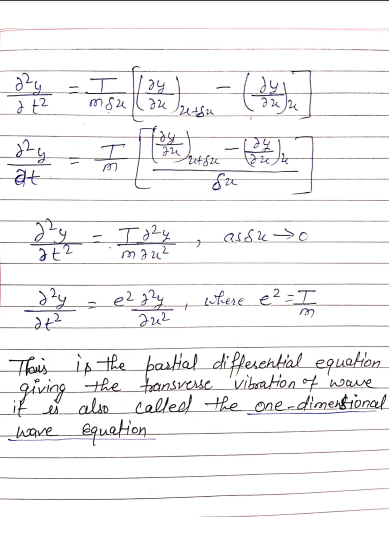 ∂²y/∂t² = T/mδx [(∂y/∂x)ₓ₊δₓ − (∂y/∂x)ₓ]
∂²y/∂t = T/m [((∂y/∂x)ₓ₊δₓ − (∂y/∂x)ₓ)/δx]
∂²y/∂t² = T∂²y/m∂x² , as δx → 0
∂²y/∂t² = c² ∂²y/∂x² , where c² = T/m
This is the partial differential equation
giving the transverse vibration of wave
it is also called the one-dimensional
wave equation